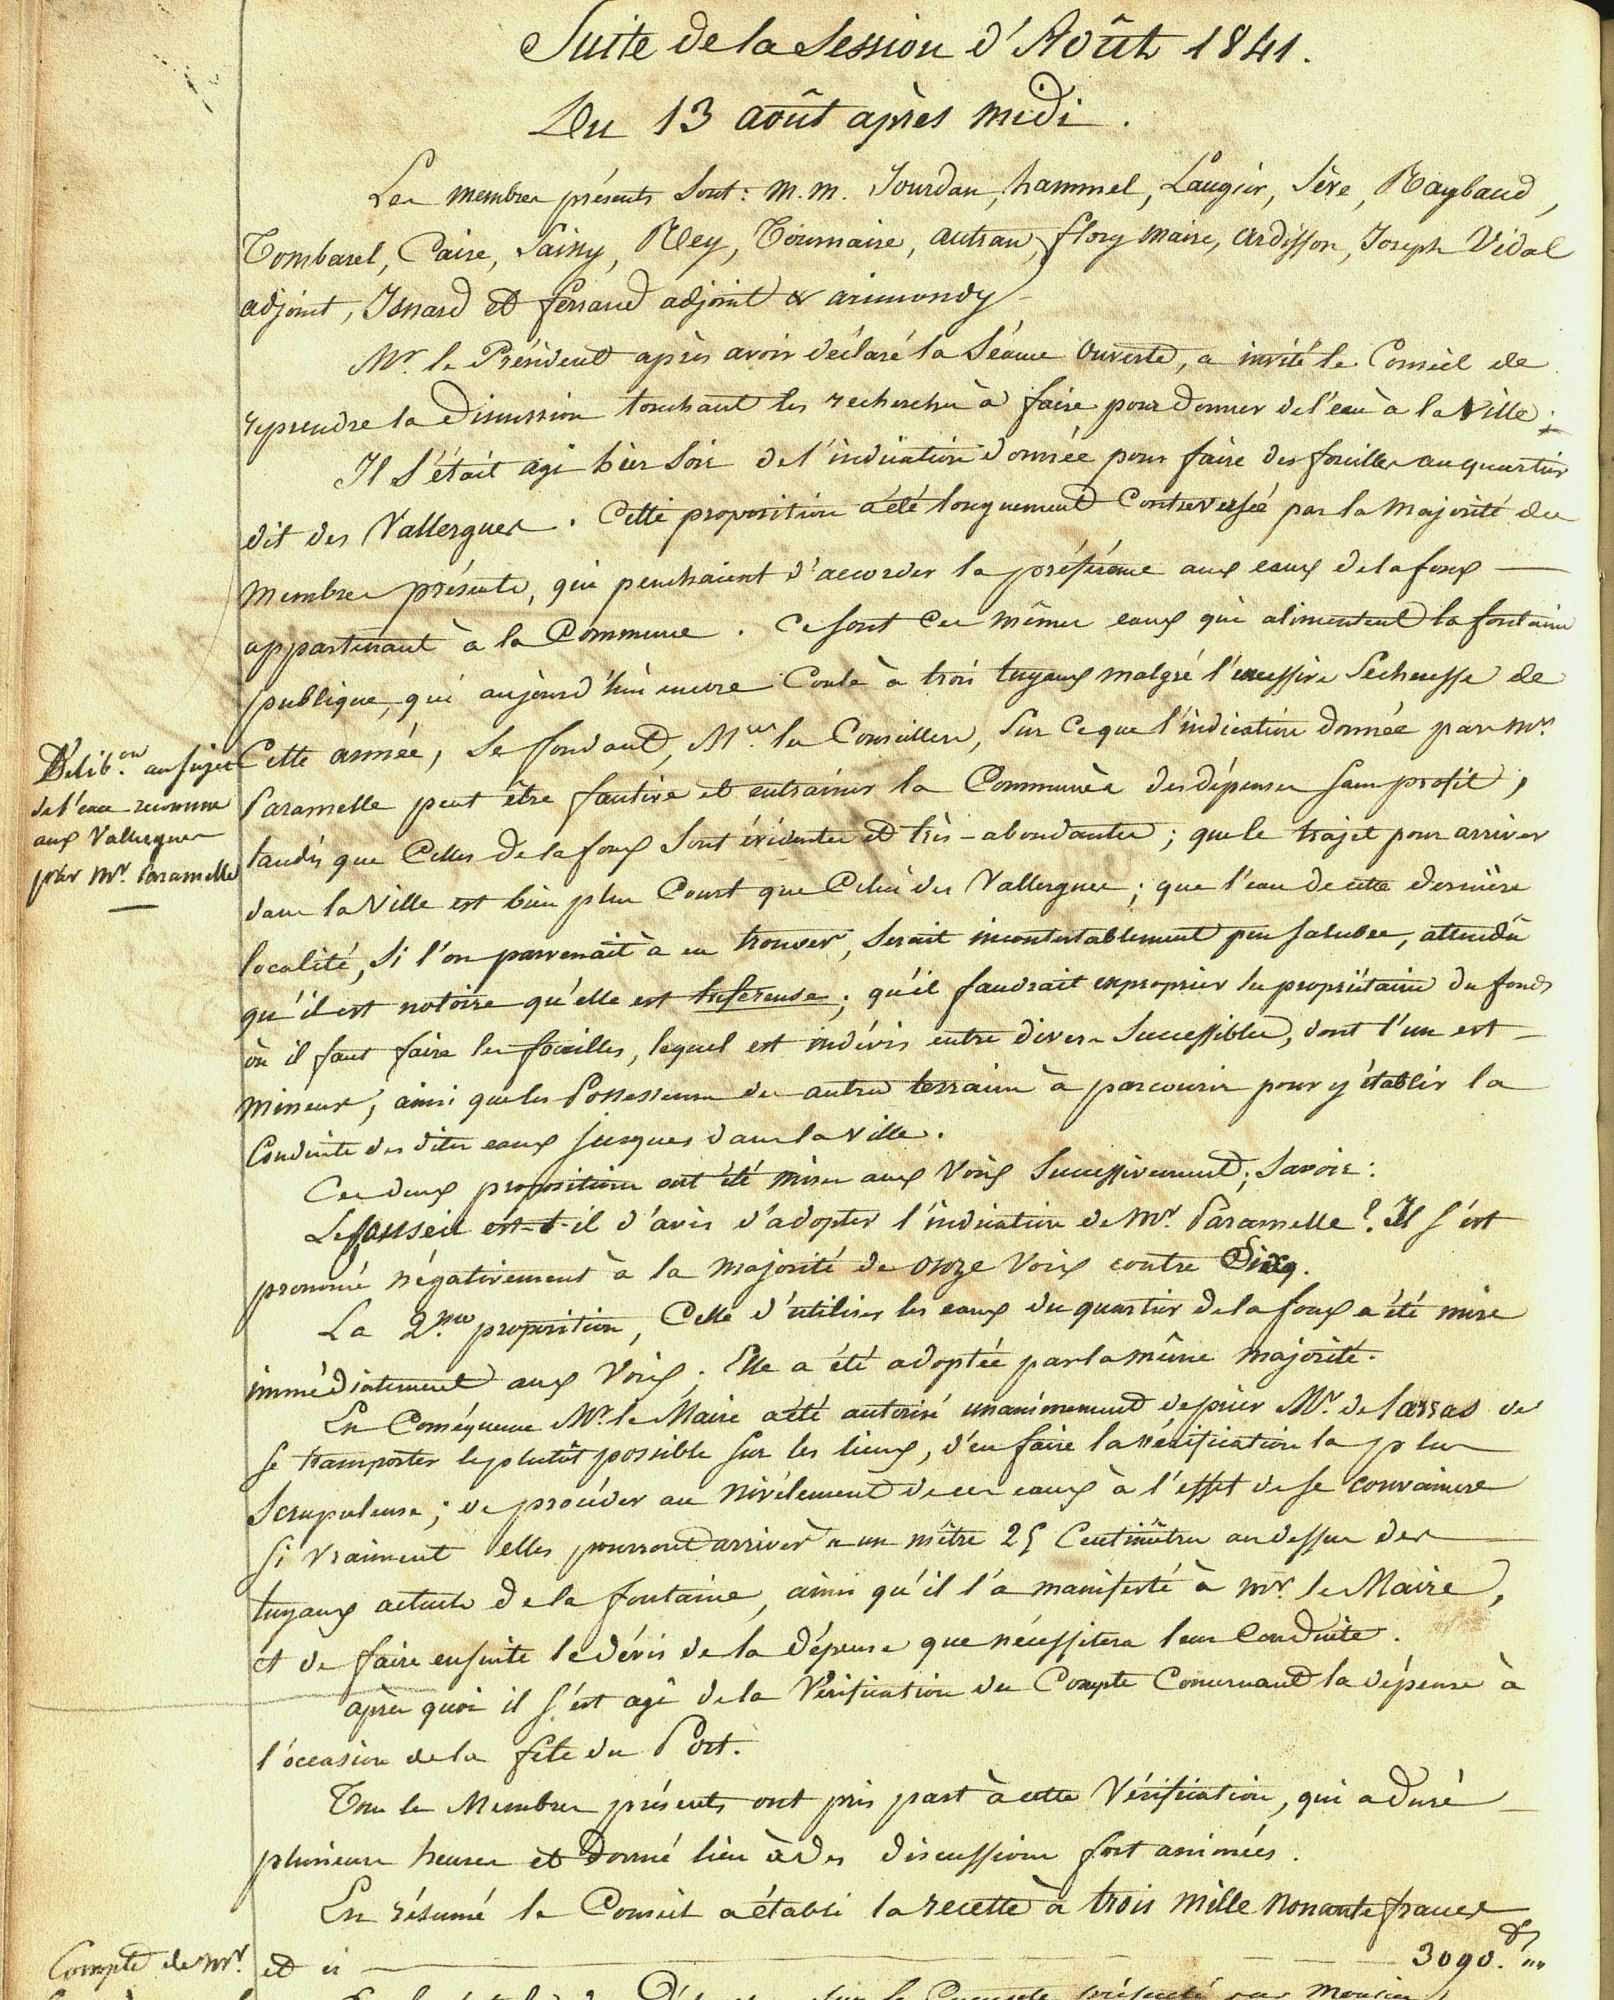 Suite de la Session d'Août 1841.
Du 13 août après midi.
Les membres présents sont: M.M. Jourdan, hammel, Laugier, Sère, Raybaud,
Tombarel, Caire, Sainy, Rey, Tournaire, autran, flory maire, ardisson, Joseph Vidal
adjoint, Isnard et ferrand adjoint & arimondy
Mr. le Président après avoir déclaré la Séance ouverte, a invité le Conseil de
reprendre la discussion touchant les recherches à faire pour donner de l'eau à la Ville;
Il s'était agi hier soir de l'indication donnée pour faire des fouilles au quartier
dit des Vallergues. Cette proposition a été longuement Controversée par la majorité des
membres présents, qui penchaient d'accorder la préférence aux eaux de la foux
appartenant à la Commune. Ce sont ces mêmes eaux qui alimentent la fontaine
publique, qui aujourd'hui encore Coule à trois tuyaux malgré l'excessive Secheresse de
Délib.on au sujet
de l'eau reconnue
aux Vallergues
par Mr. Paramelle
Cette année, se fondant, M.rs les Conseillers, sur ce que l'indication donnée par Mr.
Paramelle peut être fautive et entrainer la Commune à des dépenses sans profit,
tandis que Celles de la foux sont évidentes et très-abondantes; que le trajet pour arriver
dans la Ville est bien plus Court que Celui des Vallergues; que l'eau de cette dernière
localité, si l'on parvenait à en trouver, serait incontestablement peu salubre, attendu
qu'il est notoire qu'elle est tuféreuse; qu'il faudrait exproprier les propriétaires du fonds
où il faut faire les fouilles, lequel est indivis entre divers Successibles, dont l'un est
mineur, ainsi que les Possesseurs des autres terrains à parcourir pour y établir la
Conduite des dites eaux jusques dans la ville.
Ces deux propositions ont été mises aux Voix Successivement, Savoir:
Le Conseil est-il d'avis d'adopter l'indication de Mr. Paramelle? Il s'est
prononcé négativement à la majorité de onze Voix contre Six.
La 2.me proposition, Celle d'utiliser les eaux du quartier de la foux a été mise
immédiatement aux Voix. Elle a été adoptée par la même majorité.
En Conséquence Mr. le Maire a été autorisé unanimement de prier Mr. de lassas de
se transporter le plutôt possible sur les lieux, d'en faire la vérification la plus
scrupuleuse; de procéder au nivélement de ces eaux à l'effet de se convaincre
si vraiment elles pourront arriver à un mètre 25 Centimètres au dessus des
tuyaux actuels de la fontaine, ainsi qu'il l'a manifesté à mr. le Maire,
et de faire ensuite le dévis de la dépense que nécessitera leur Conduite.
après quoi il s'est agi de la Vérification du Compte Concernant la dépense à
l'occasion de la fête du Port.
Tous les Membres présents ont pris part à cette Vérification, qui a duré
plusieurs heures et donné lieu à des discussions fort animées.
En résumé le Conseil a établi la recette à trois mille nonante francs
Compte de Mr.
et ci 3090.f